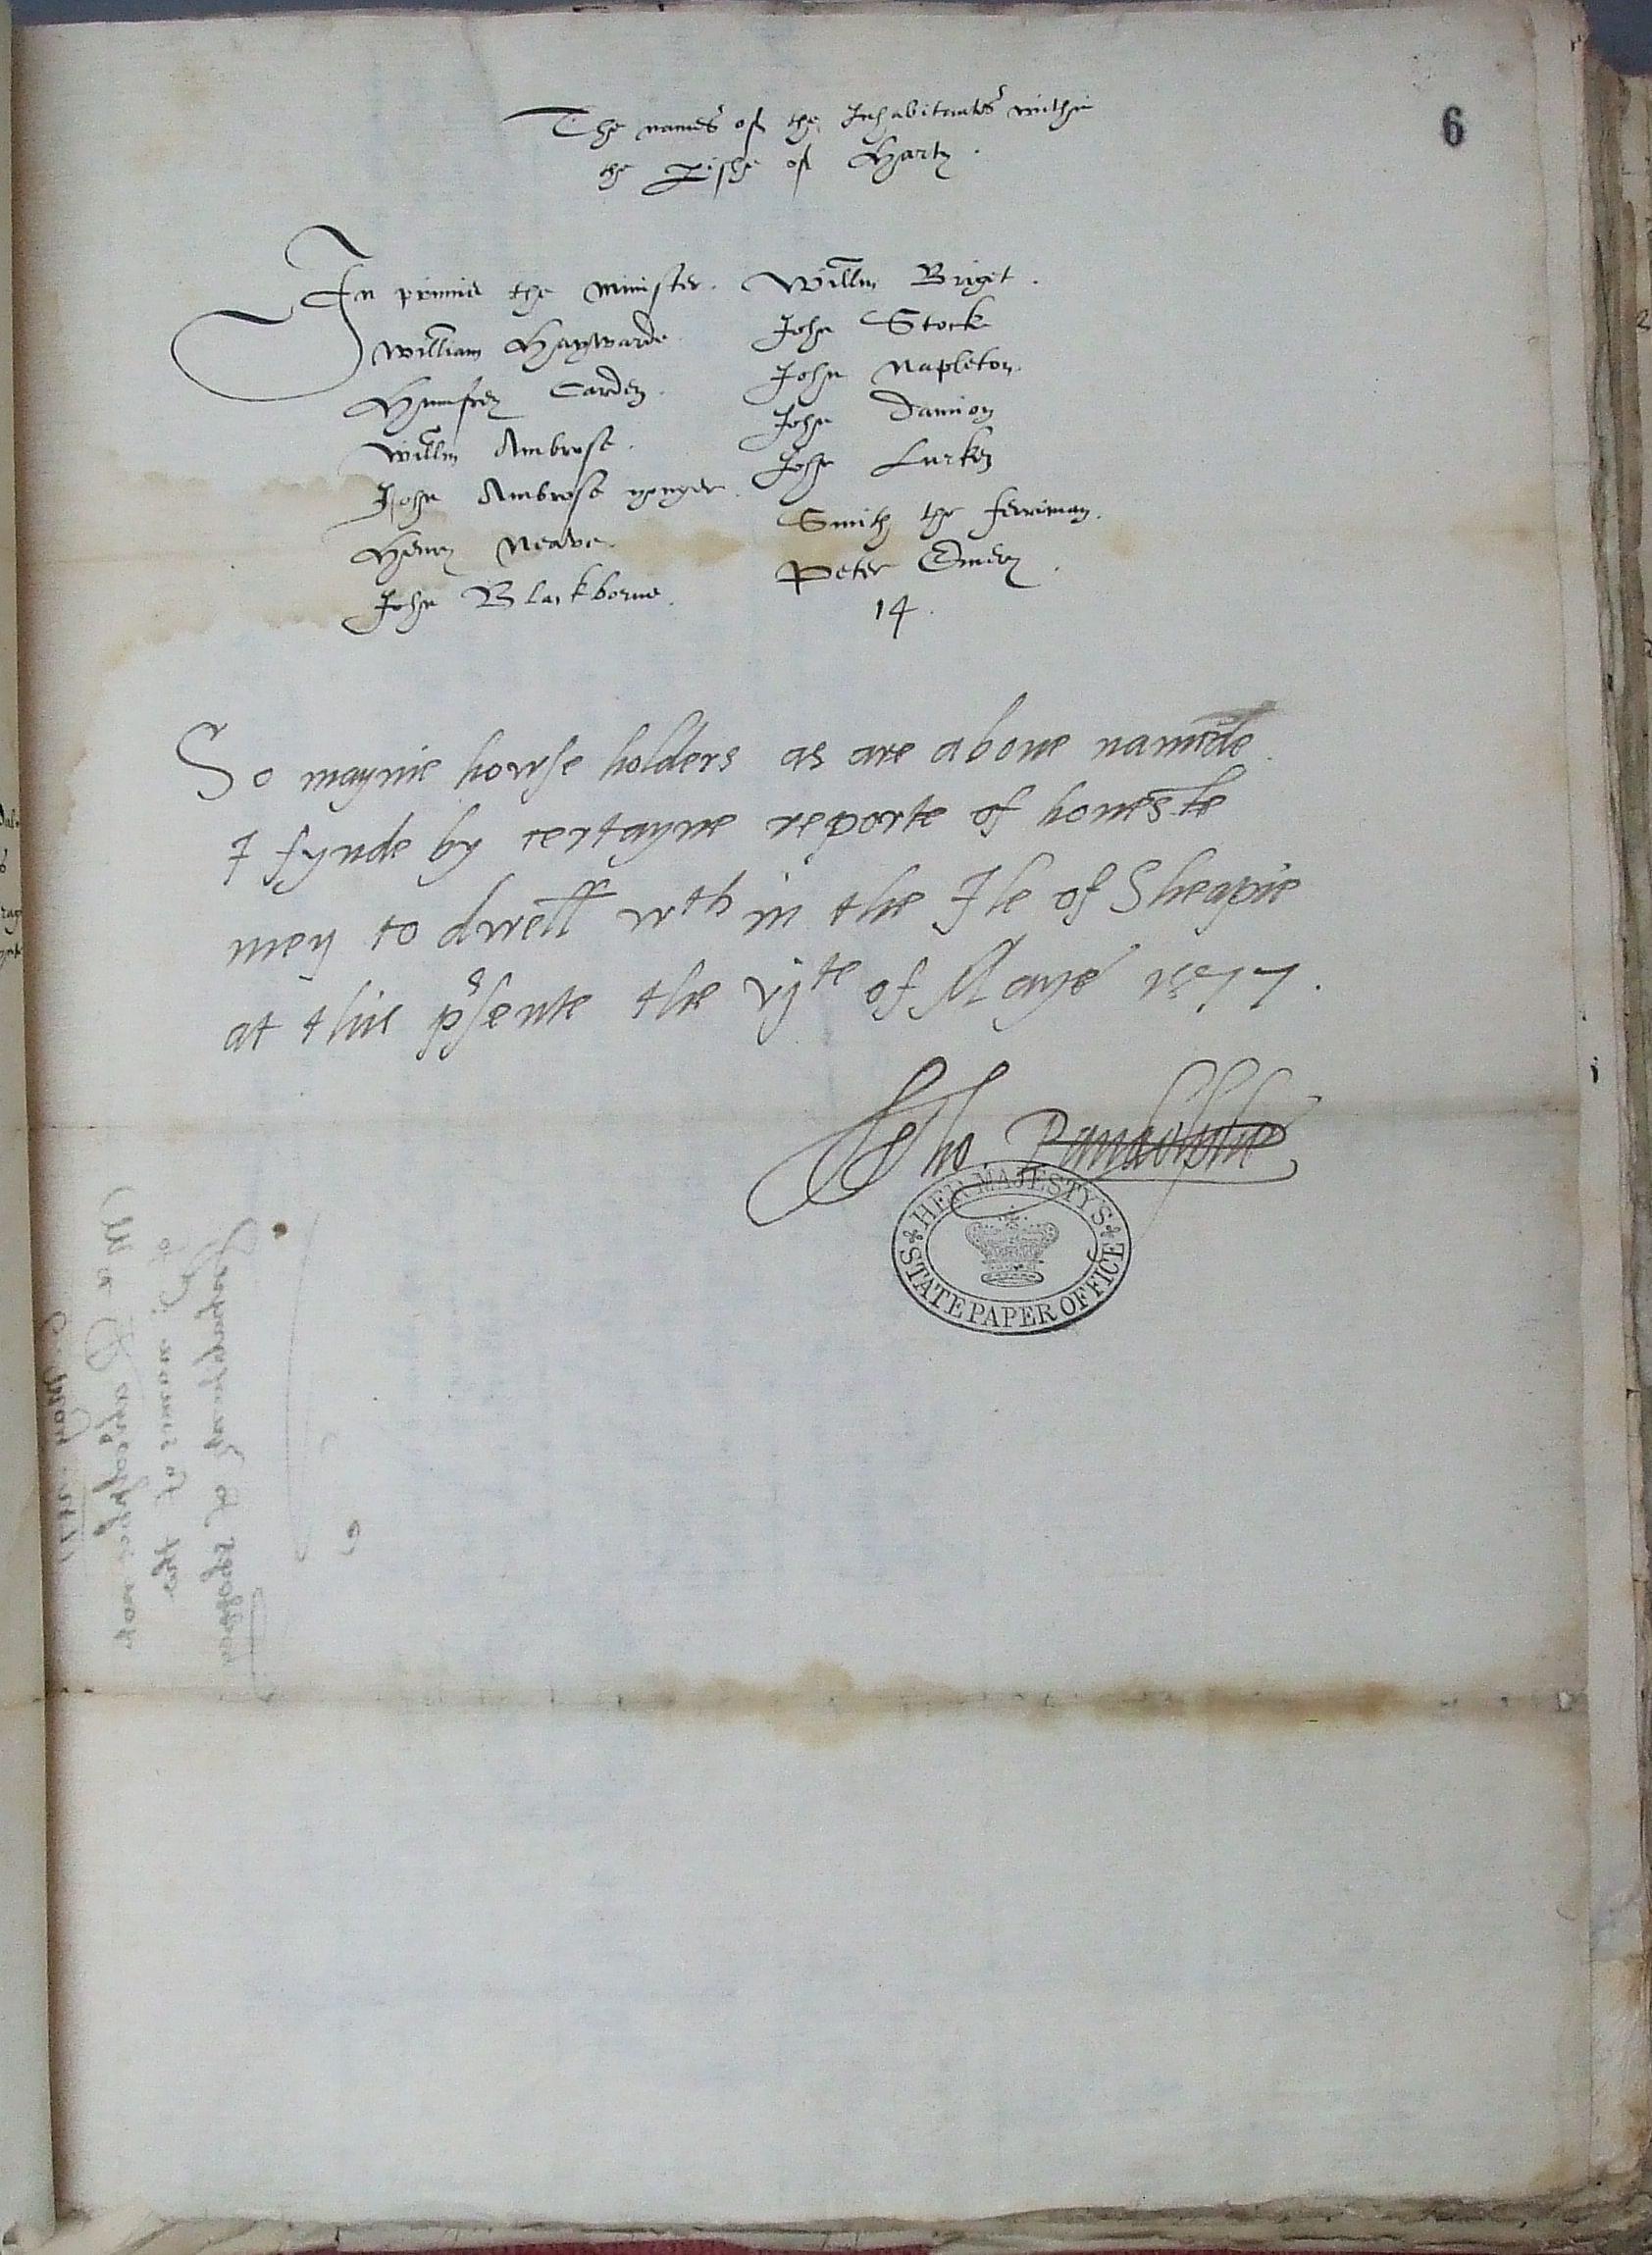 6
The names of the Inhabitantes within
the pishe of Harty.
In primis the minister.
William Haywarde.
Humfrey Carden.
Willm Ambrose.
John Ambrose yonger.
Henry Neave.
John Blackborne.
Willm Briget.
John Stock
John Napleton.
John Damion
John Lurken
Smith the ferriman.
Peter Emery.
14.
So maynie howse holders as are above namede
I fynde by certayne reporte of honeste
men to dwell wth in the Ile of Sheapie
at this psente the vjte of Maye 1577.
Tho Randolphe
HER MAJESTY'S
STATE PAPER OFFICE